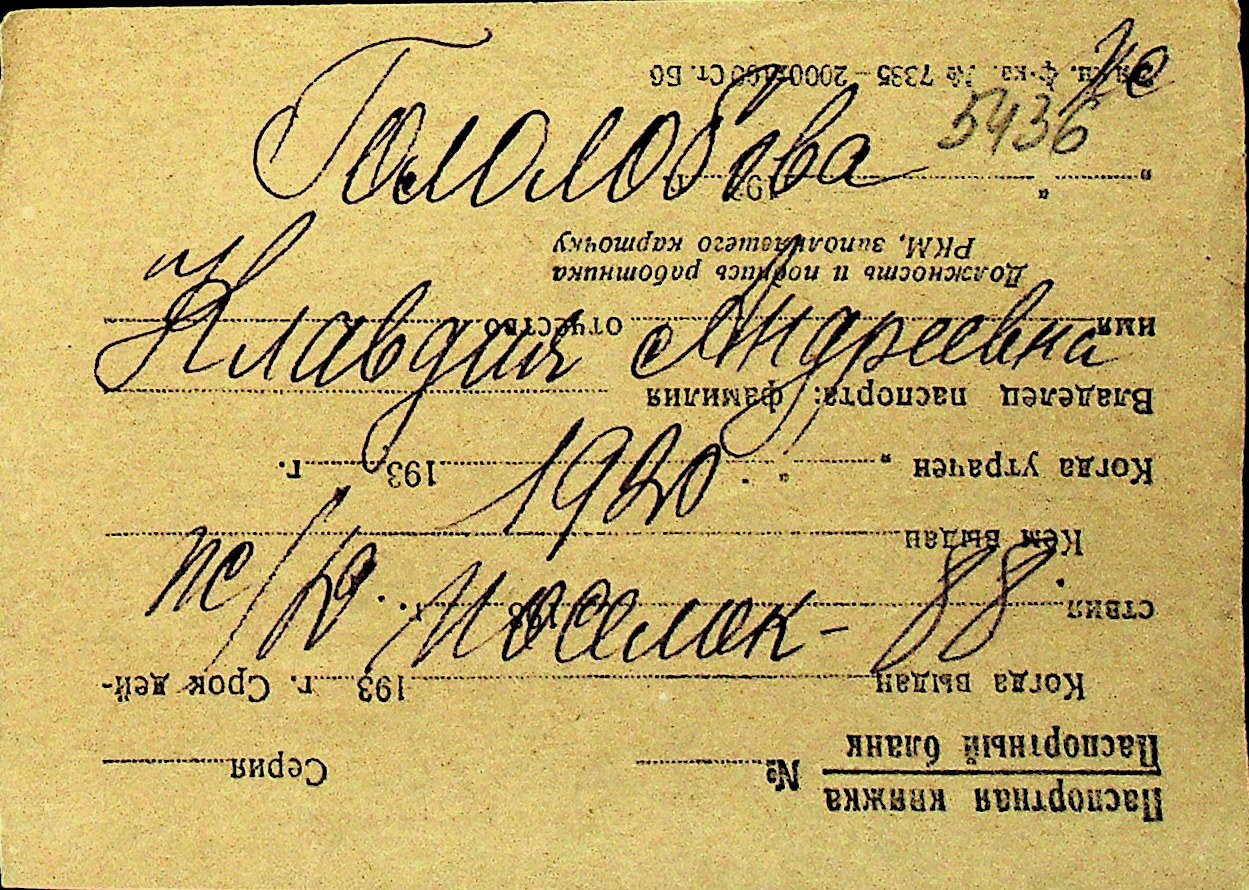 жс
5436
Гололобова
Клавдия Андреевна
1920
ж/д. поселок - 88.
Паспортная книжка
Паспортный бланк
№ Серия
Когда выдан 193 г. Срок дей-
ствия
Кем выдан
Когда утрачен „ “ 193 г.
Владелец паспорта: фамилия
имя отчество
Должность и подпись работника
РКМ, заполняющего карточку
„ “ 193 г.
ф-ка. № 7335—2000×100 Ст. Б6